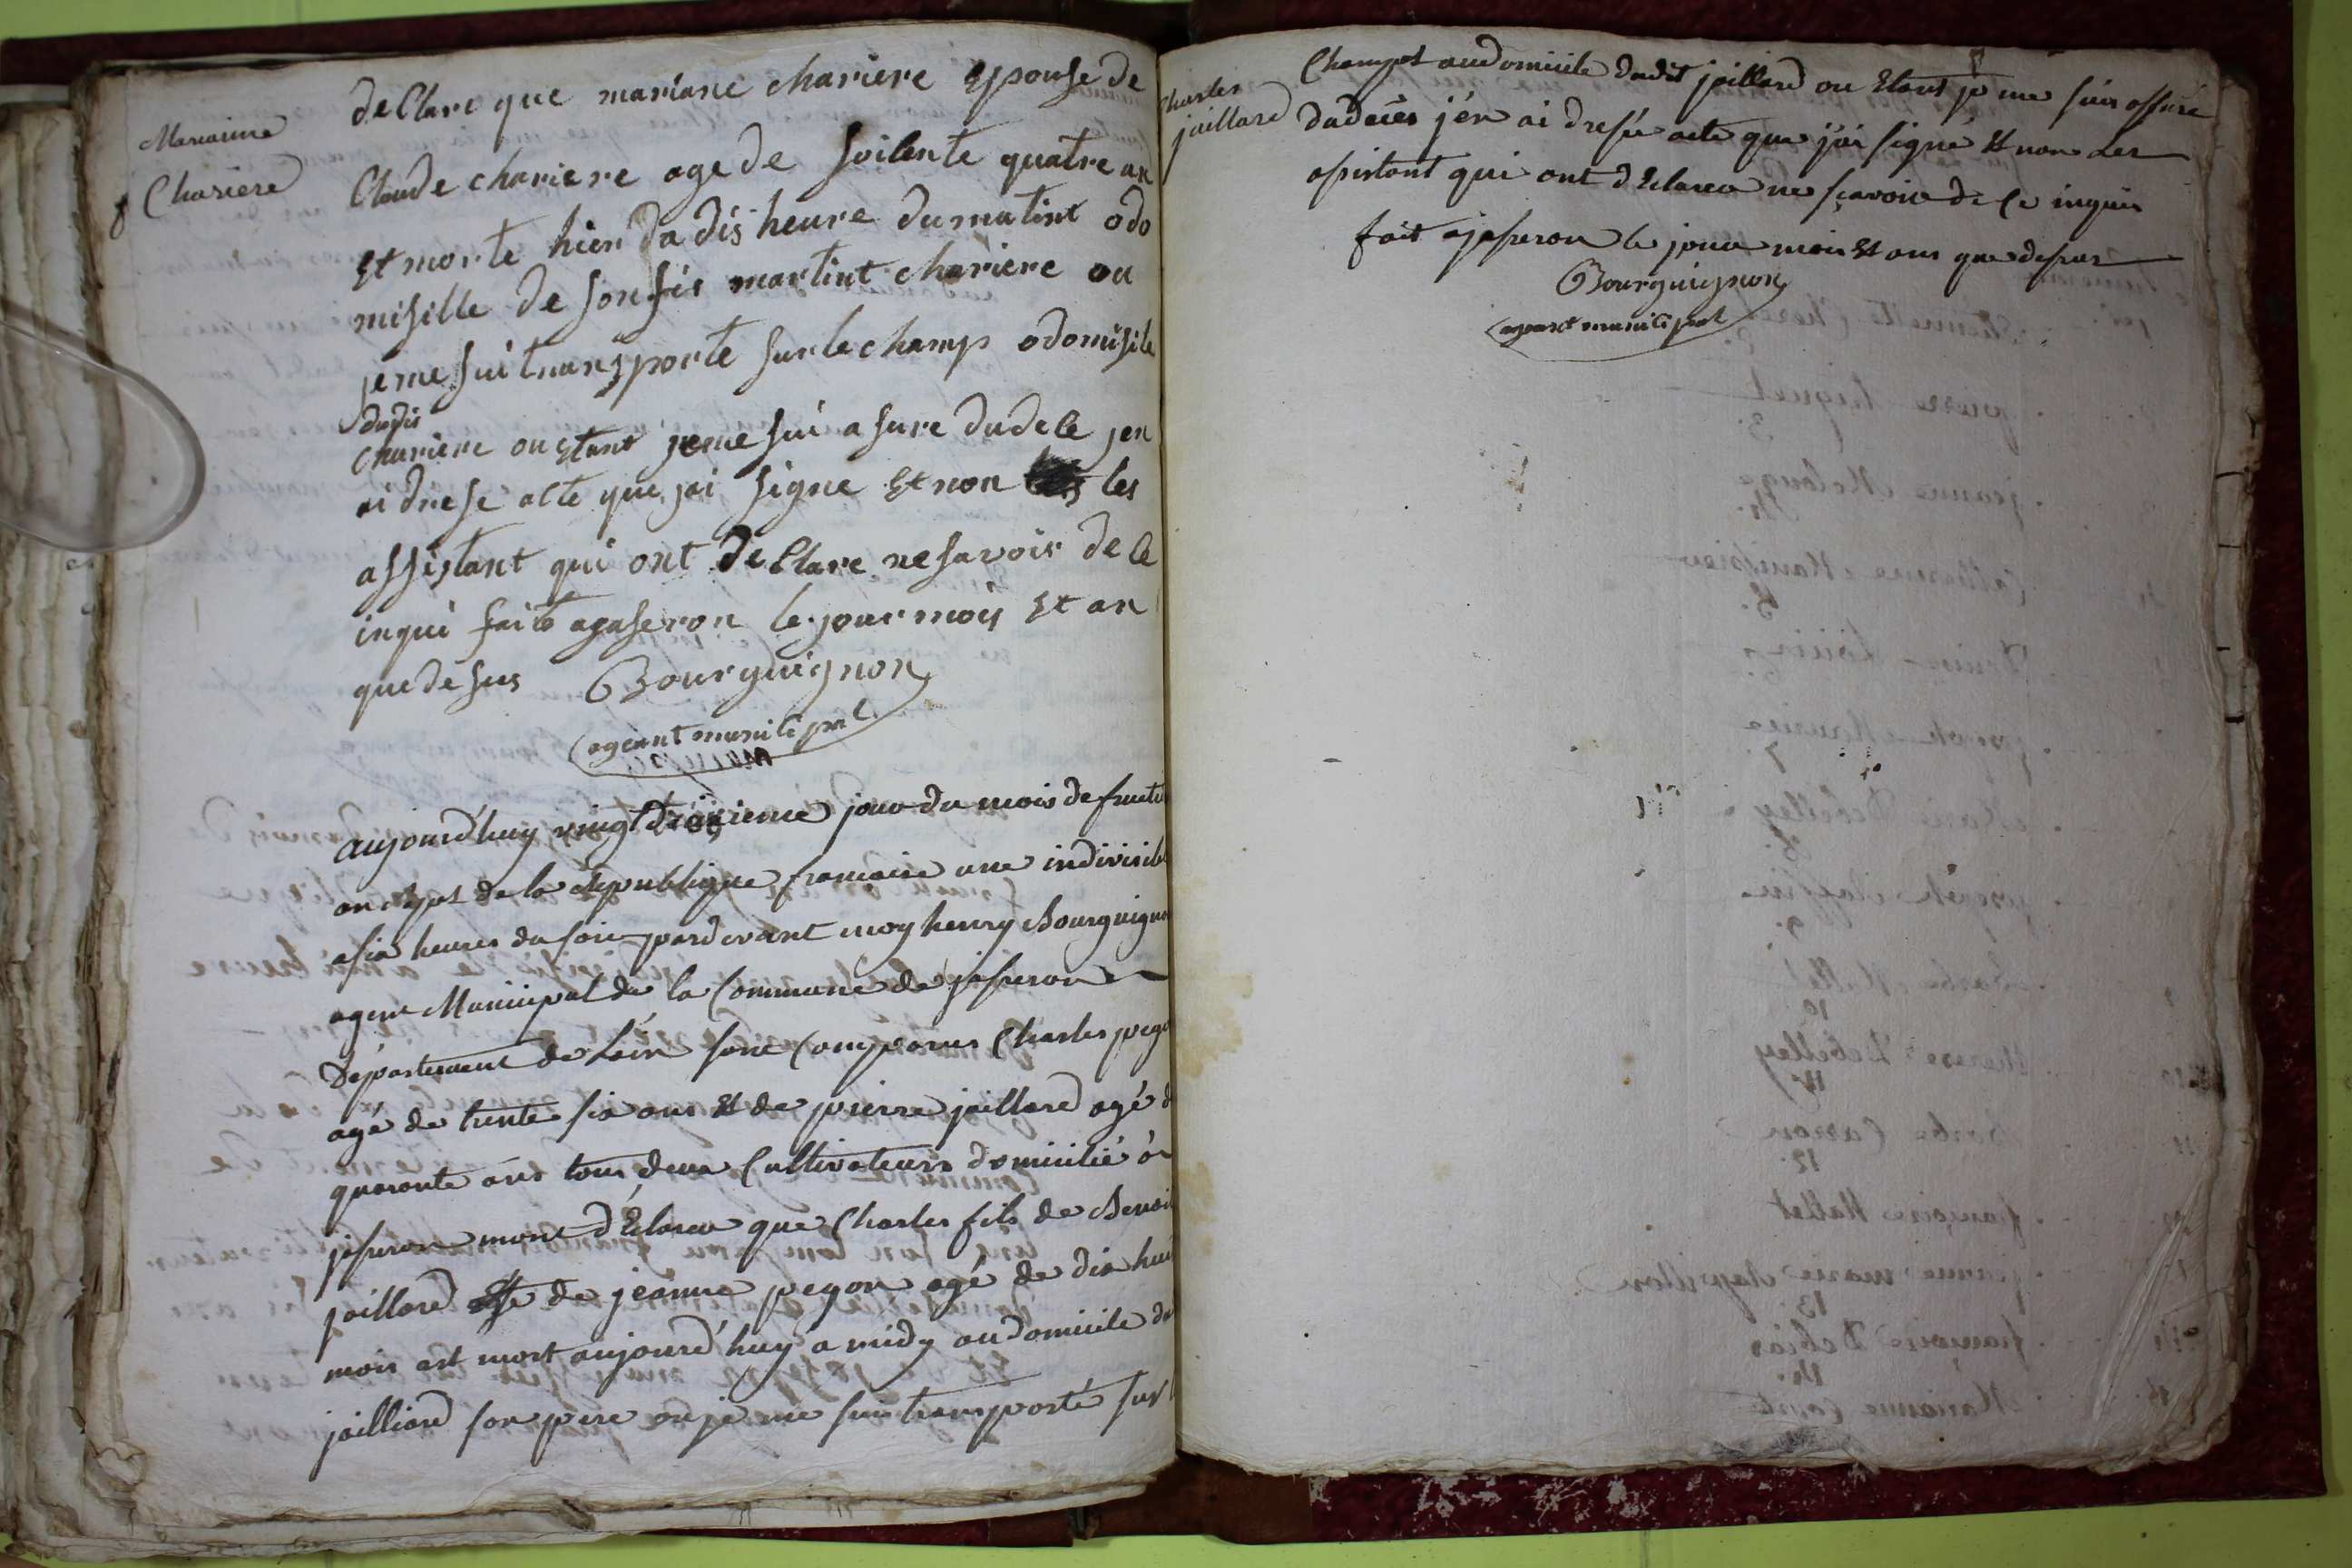 Marianne
Chariere
declare que mariane chariere epouse de
Claude chariere age de soilente quatre an
et morte hier da dis heure du matint odo
misille de son fis martint chariere ou
je me sui transporte sur le champ odomisile
dudis
chariere ou etant je me sui asure du dele jen
ai drese acte que jai signe et non les
assistant qui ont declare ne savoir de ce
inqui fait a gaseron le jour mois et an
que desus Bourguignon
ageant municipal
aujourd'huy vingt troisieme jour du mois de fructi
an sept de la republique francaise une indivisibl
a six heures du soir pardevant moy henry Bourguigno
agent Municipal de la Commune de jasseron
Département de Lain sont Comparus Charles pego
agé de trente six ans et de pierre jaillard agé d
quarante ans tous deux Cultivateurs domicilié a
jasseron mont déclaré que Charles fils de Benoi
jaillard et de jeanne pegon agé de dix hui
mois est mort aujourd'huy a midy au domicile du
jailliard son pere ou je me suis transporté sur
Charles
jaillard
Champt audomicile dudit jaillard ou Etant je me suis assuré
du deces j'en ai dressé acte que j'ai signé et non les
assistant qui ont déclaré ne scavoir de ce inquis
fait a jasseron le jour mois et ans que dessus
Bourguignon
ageant municipal